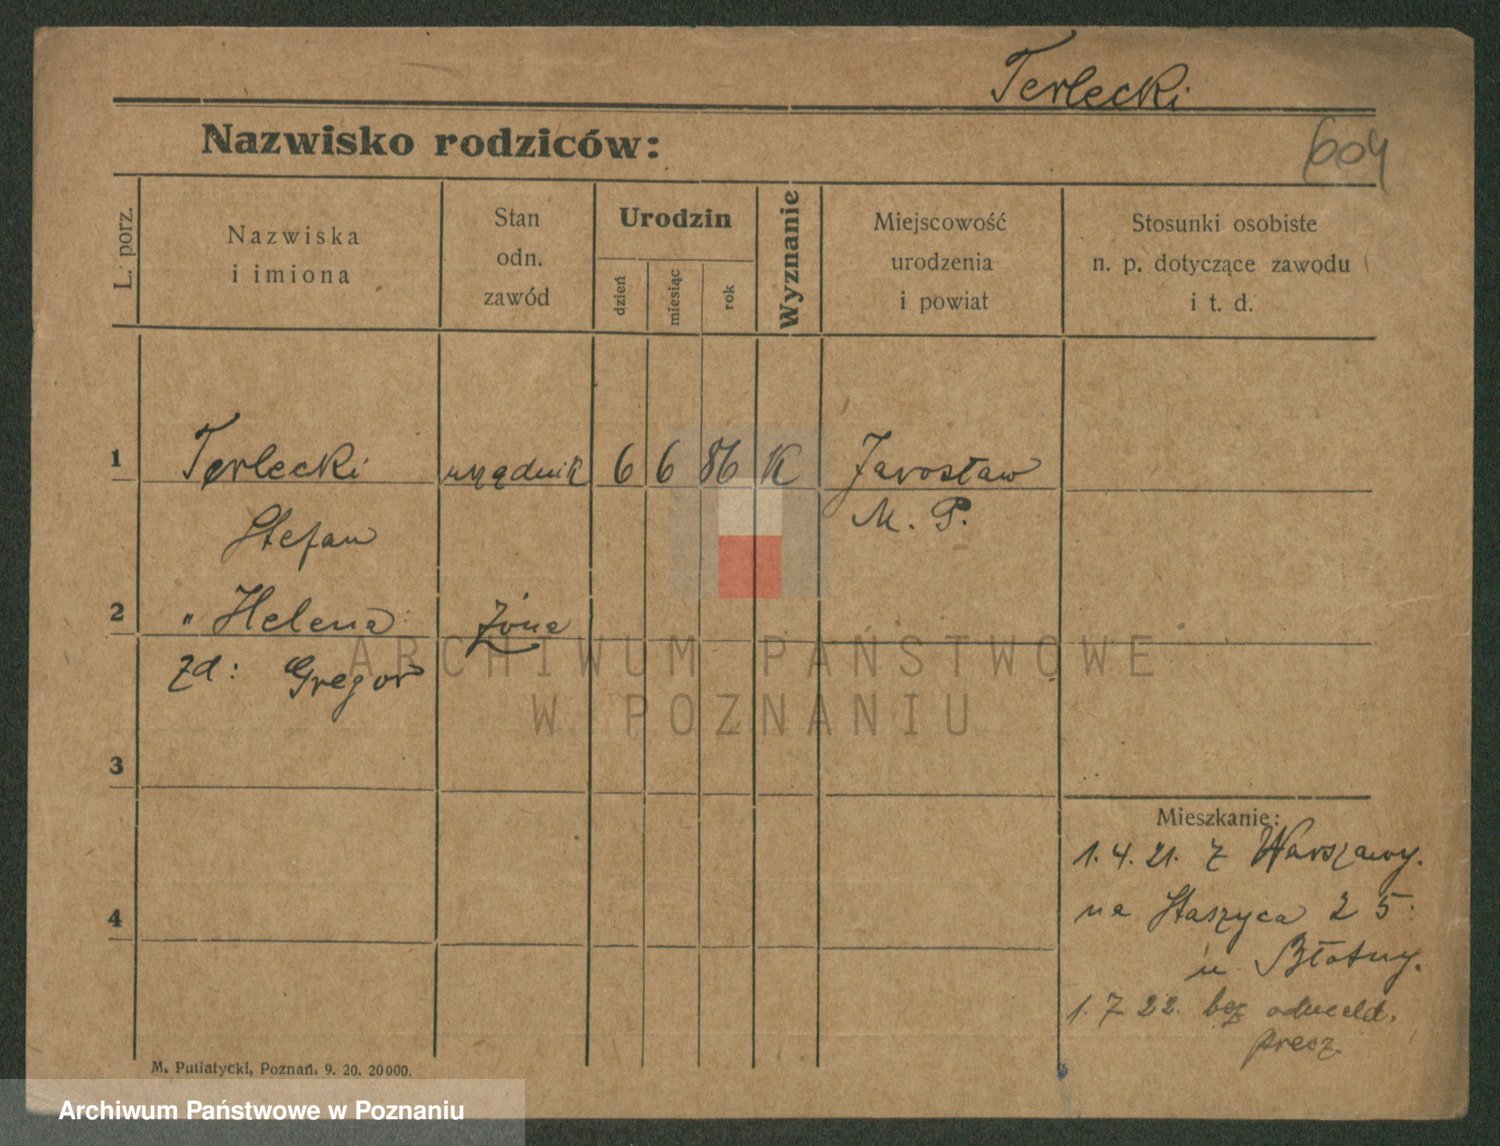 Terlecki
Nazwisko rodziców:
604
L. porz.
Nazwiska
i imiona
Stan
odn.
zawód
Urodzin
dzień
miesiąc
rok
Wyznanie
Miejscowość
urodzenia
i powiat
Stosunki osobiste
n. p. dotyczące zawodu
i t. d.
1 Terlecki urzędnik 6 6 86 K Jarosław
Stefan M. P.
2 " Helena żona
zd: Gregor
3
4
Mieszkanie:
1.4.21. z Warszawy.
na Staszyca 25.
u Błotny.
1.7.22. bez odmeld.
precz.
M. Putiatycki, Poznań. 9. 20. 20000.
ARCHIWUM PAŃSTWOWE
W POZNANIU
Archiwum Państwowe w Poznaniu